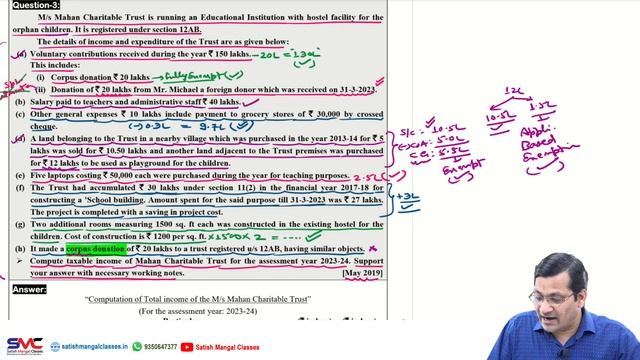 Question-3:
M/s Mahan Charitable Trust is running an Educational Institution with hostel facility for the
orphan children. It is registered under section 12AB.
The details of income and expenditure of the Trust are as given below:
(a) Voluntary contributions received during the year ₹ 150 lakhs. -20L = 130L
This includes:
(i) Corpus donation ₹ 20 lakhs → fully Exempt
(ii) Donation of ₹ 20 lakhs from Mr. Michael a foreign donor which was received on 31-3-2023.
(b) Salary paid to teachers and administrative staff ₹ 40 lakhs.
(c) Other general expenses ₹ 10 lakhs include payment to grocery stores of ₹ 30,000 by crossed
cheque. (-) 0.3L = 9.7L
(d) A land belonging to the Trust in a nearby village which was purchased in the year 2013-14 for ₹ 5
lakhs was sold for ₹ 10.50 lakhs and another land adjacent to the Trust premises was purchased
for ₹ 12 lakhs to be used as playground for the children.
(e) Five laptops costing ₹ 50,000 each were purchased during the year for teaching purposes. 2.5L
(f) The Trust had accumulated ₹ 30 lakhs under section 11(2) in the financial year 2017-18 for
constructing a 'School building. Amount spent for the said purpose till 31-3-2023 was ₹ 27 lakhs.
The project is completed with a saving in project cost.
(g) Two additional rooms measuring 1500 sq. ft each was constructed in the existing hostel for the
children. Cost of construction is ₹ 1200 per sq. ft. x 1500 x 2 =
(h) It made a corpus donation of ₹ 20 lakhs to a trust registered u/s 12AB, having similar objects. x
➢ Compute taxable income of Mahan Charitable Trust for the assessment year 2023-24. Support
your answer with necessary working notes. [May 2019]
12L
10.5L 1.5L
Appli.
Based
Exemption
S/C: 10.5L
(-) COA: 5.0L
CG: 5.5L
Exempt
+3L
Answer:
"Computation of Total income of the M/s Mahan Charitable Trust"
(For the assessment year: 2023-24)
SMC
Satish Mangal Classes
satishmangalclasses.in 9350647377 Satish Mangal Classes